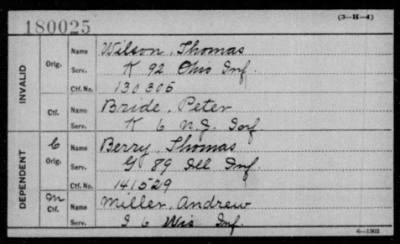 180025 (3-H-4)
INVALID Orig. Name Wilson, Thomas
Serv. K 92 Ohio Inf.
Ctf. No. 130305
Ctf. Name Bride, Peter
Serv. K 6 N.J. Inf
DEPENDENT C Orig. Name Berry, Thomas
Serv. G 89 Ill Inf.
Ctf. No. 141529
m Ctf. Name Miller, Andrew
Serv. I 6 Wis Inf.